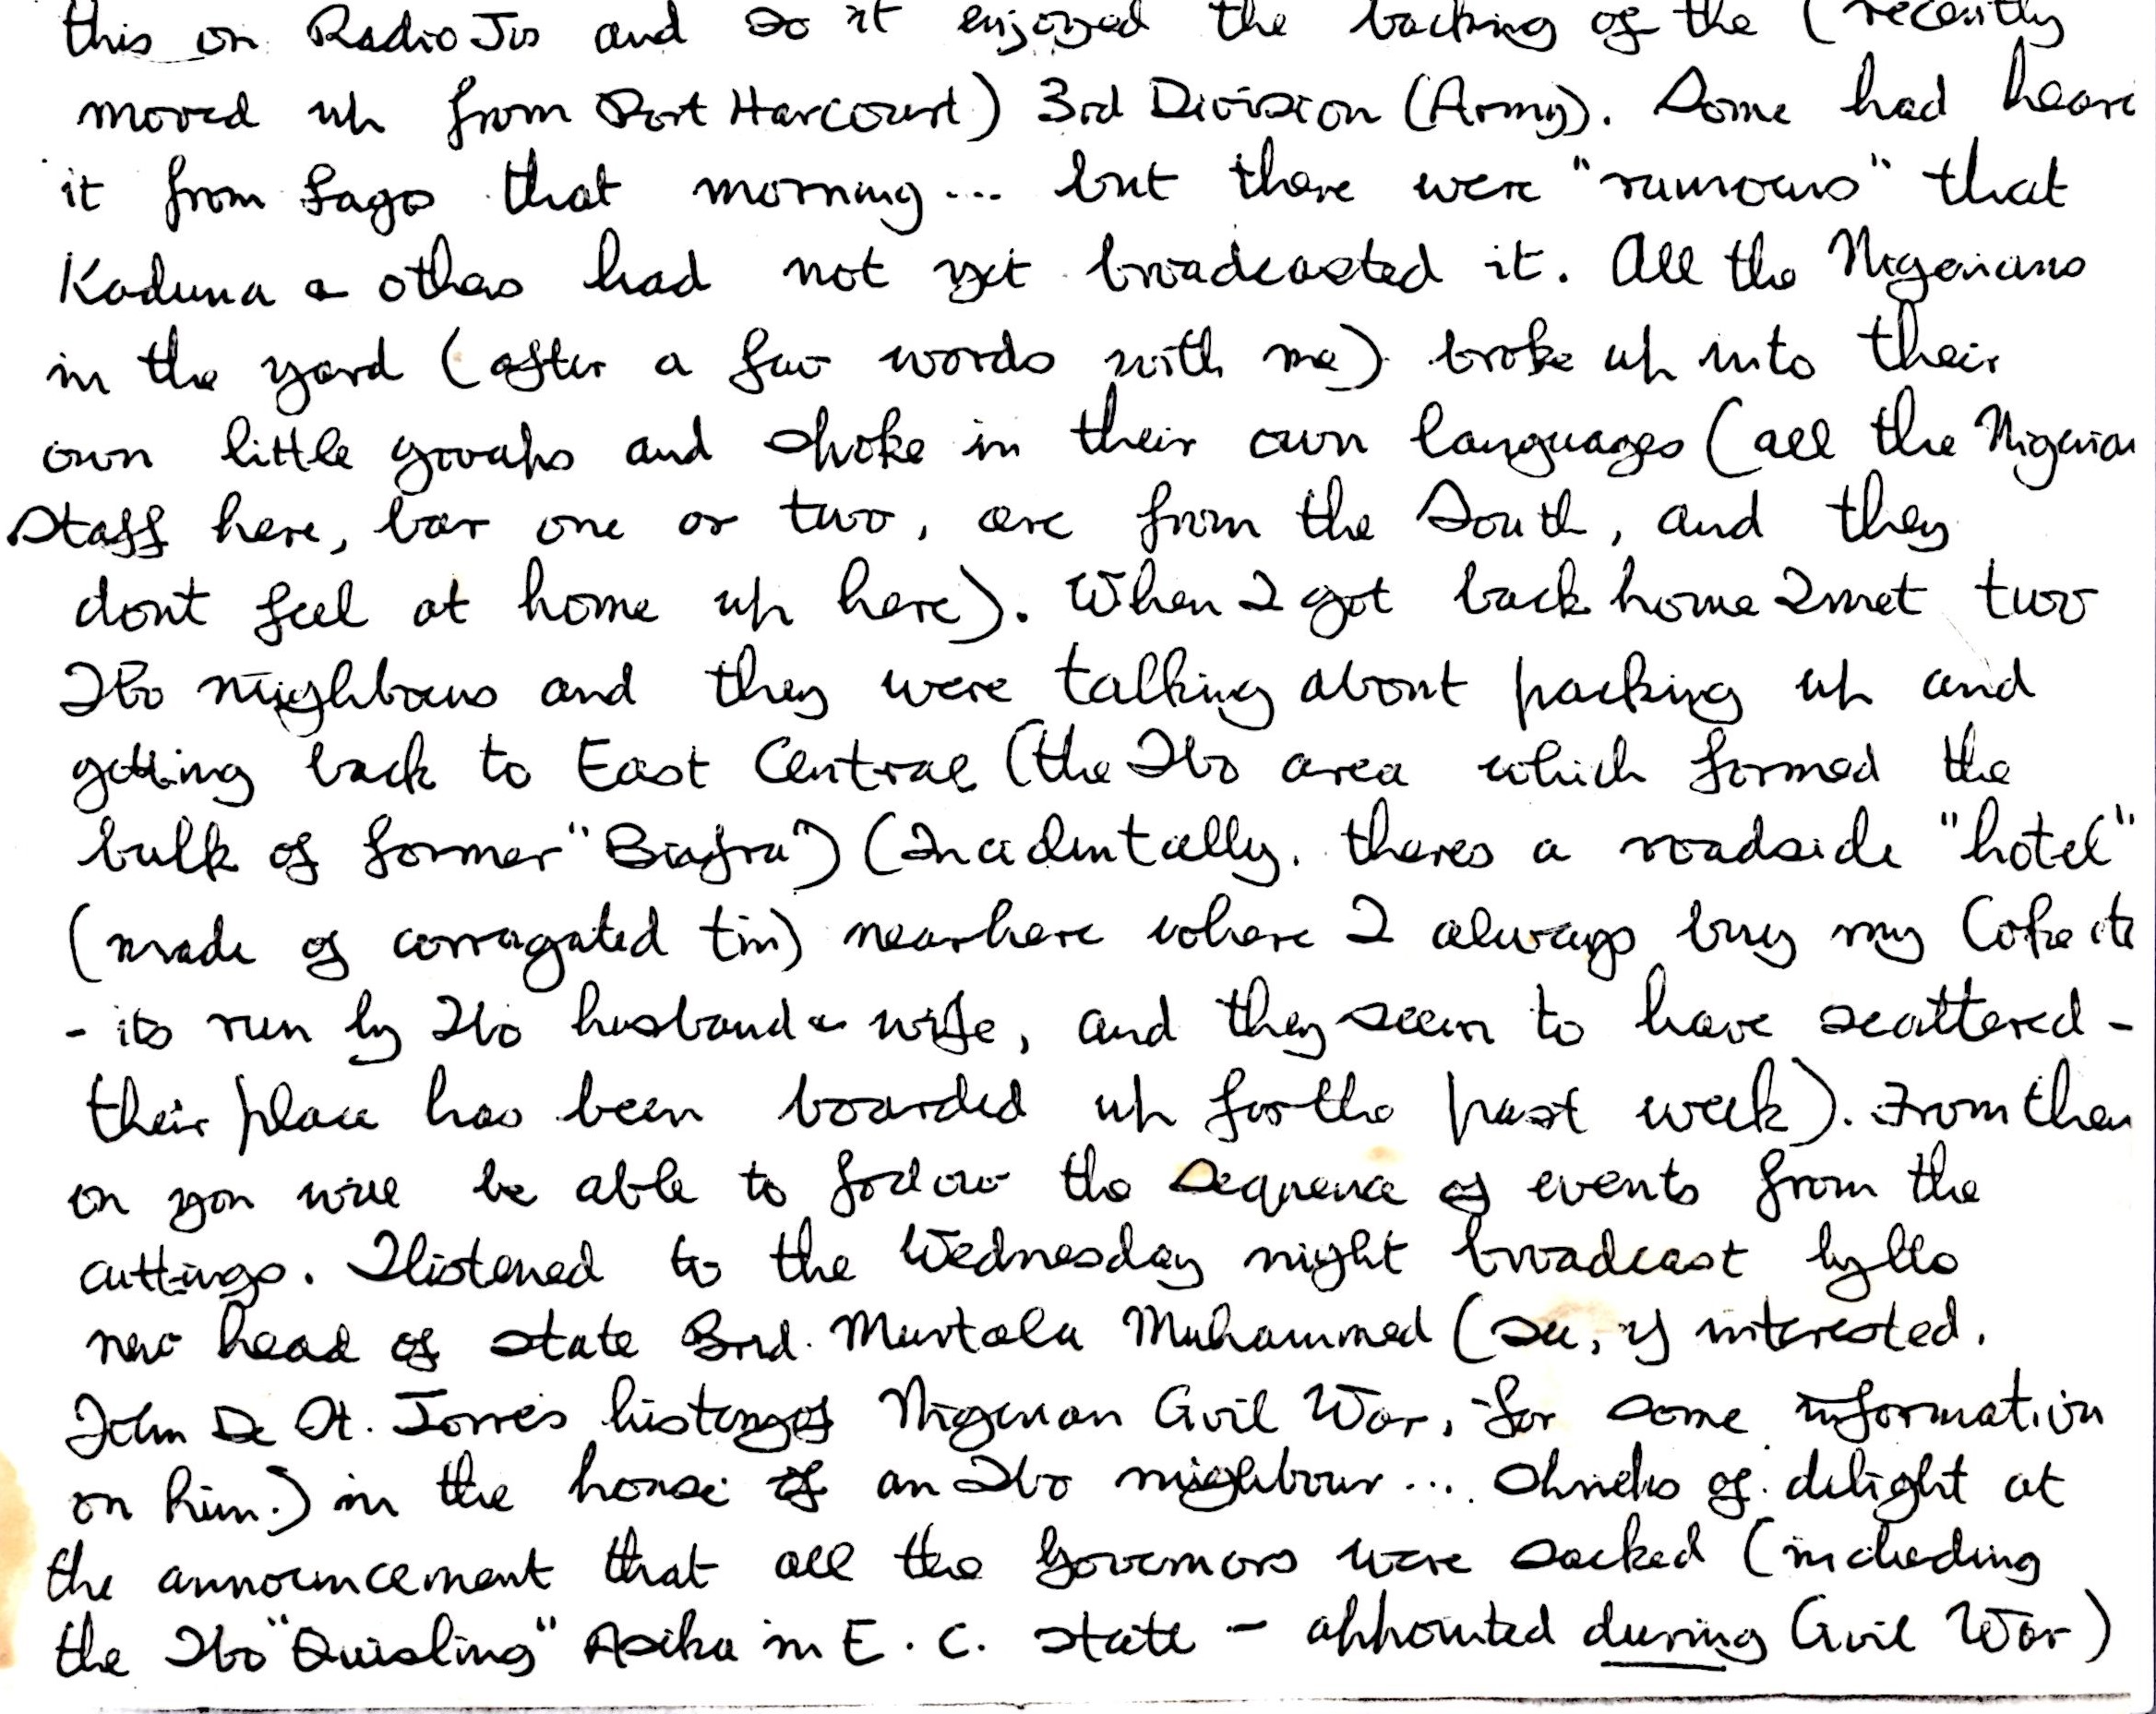 this on Radio Jos and so it enjoyed the backing of the (recently
moved up from Port Harcourt) 3rd Division (Army). Some had heard
it from Lagos that morning... but there were "rumours" that
Kaduna & others had not yet broadcasted it. All the Nigerians
in the yard (after a few words with me) broke up into their
own little groups and spoke in their own languages (all the Nigerian
staff here, bar one or two, are from the South, and they
dont feel at home up here). When I got back home I met two
Ibo neighbours and they were talking about packing up and
getting back to East Central (the Ibo area which formed the
bulk of former "Biafra") (Incidentally, theres a roadside "hotel"
(made of corrugated tin) nearhere where I always buy my Coke etc
- its run by Ibo husband & wife, and they seem to have scattered -
their place has been boarded up for the past week). From then
on you will be able to follow the sequence of events from the
cuttings. I listened to the Wednesday night broadcast by the
new head of state Brd. Murtala Muhammed (see, if interested,
John De St. Jorre's history of Nigerian Civil War, for some information
on him.) in the house of an Ibo neighbour... Shrieks of delight at
the announcement that all the Governors were sacked (including
the Ibo "Quisling" Asika in E. C. State - appointed during Civil War)